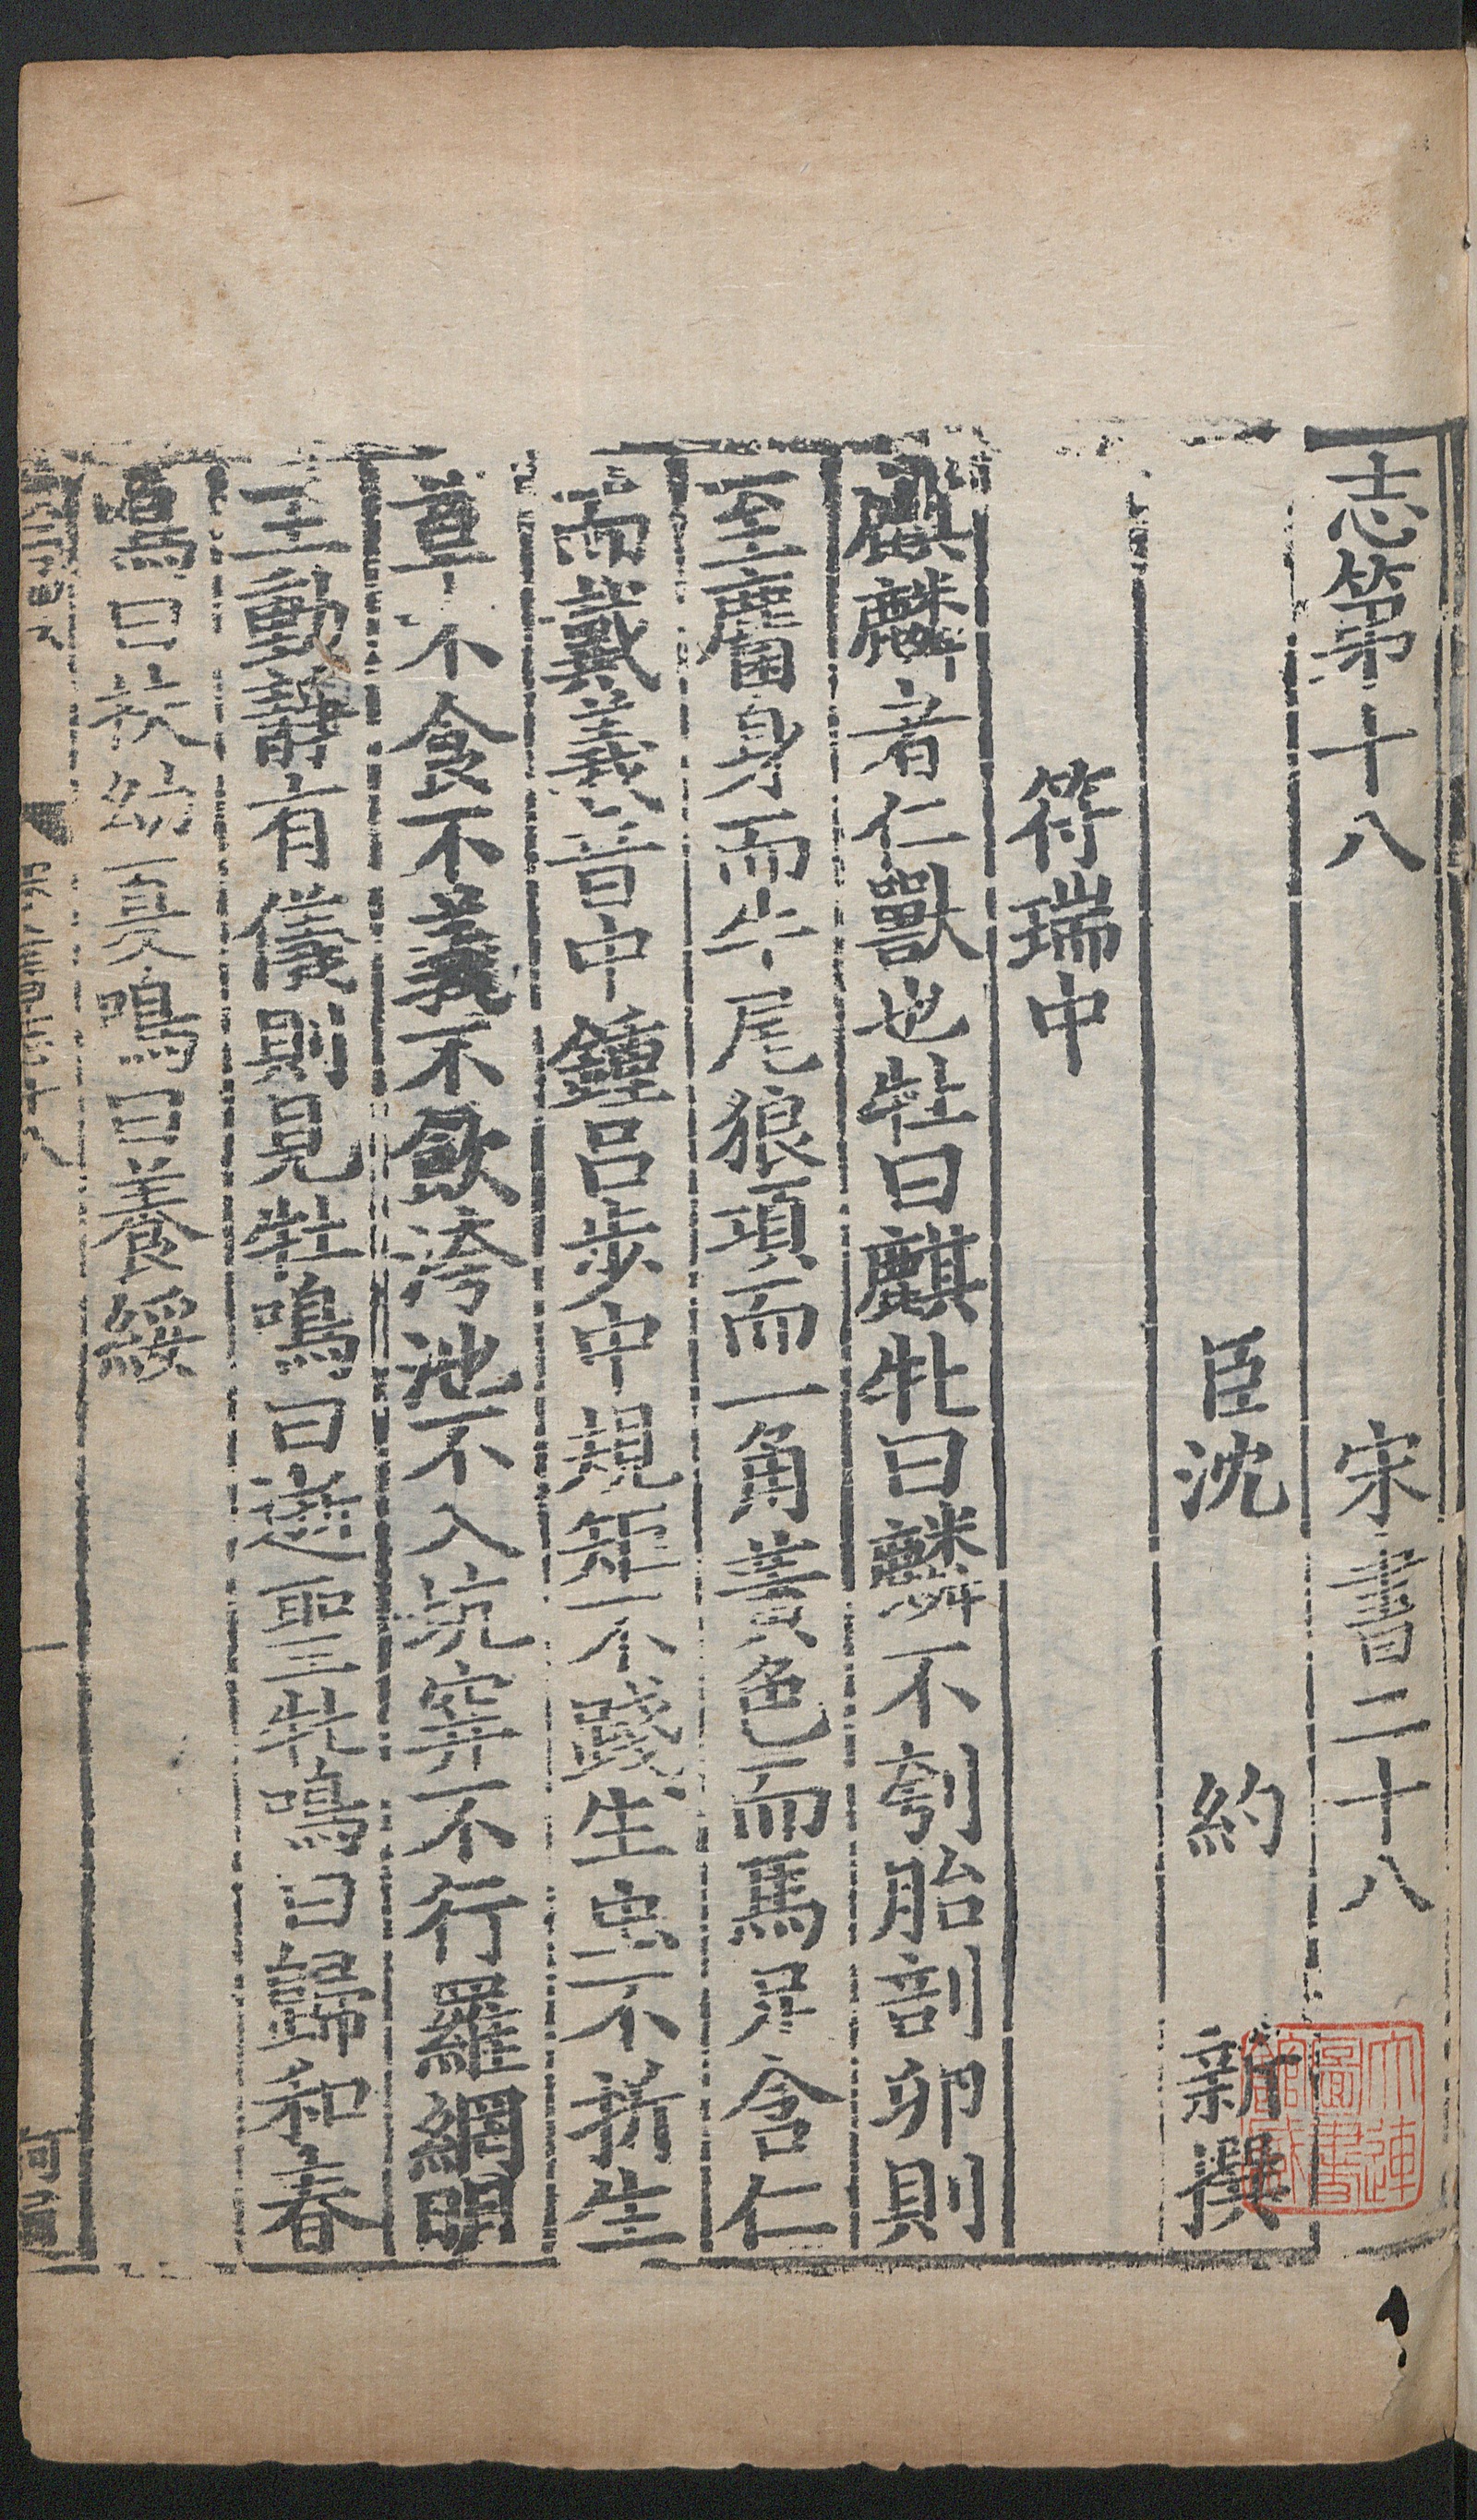 志第十八 宋書二十八
臣沈 約 新撰
符瑞中
麒麟者仁獸也牡曰麒牝曰麟不刳胎剖卵則
至麕身而牛尾狼項而一角黃色而馬足含仁
而戴義音中鍾呂步中規矩不踐生虫不折生
草不食不義不飲洿池不入坑穽不行羅網明
王動靜有儀則見牡鳴曰逝聖牝鳴曰歸和春
鳴曰扶幼夏鳴曰養綏
大連
圖書
館藏